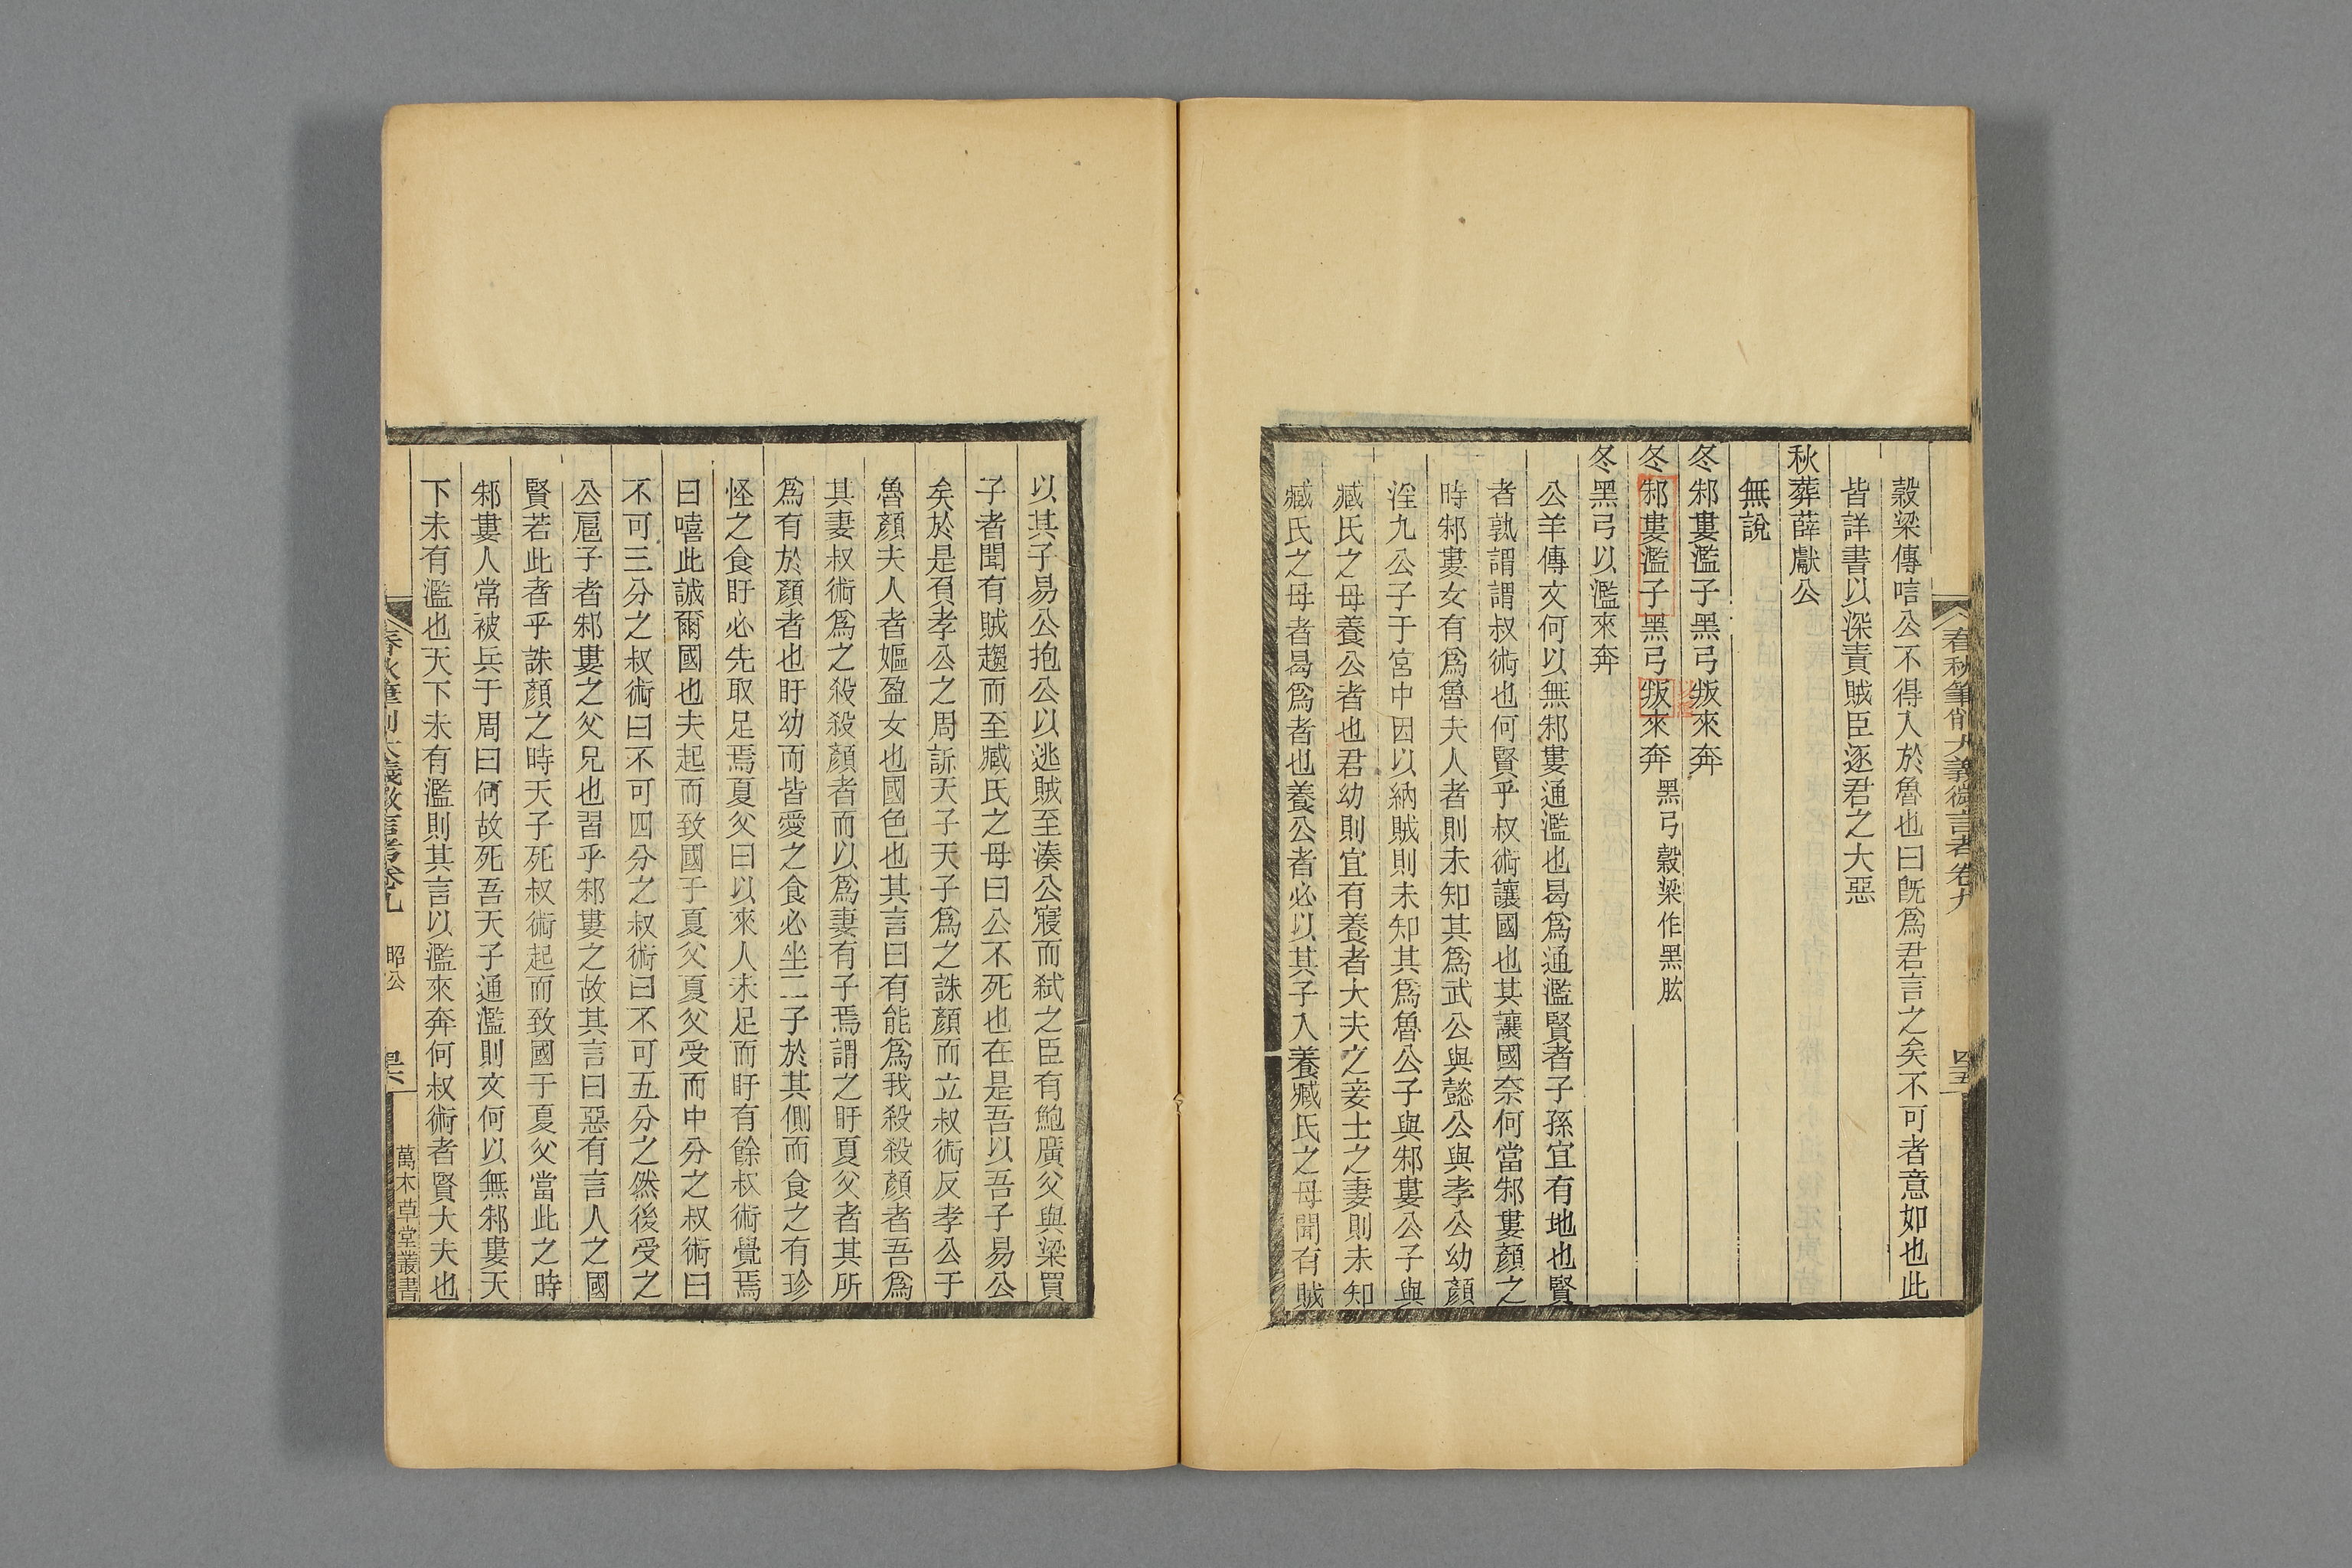 春秋筆削大義微言考卷九
穀梁傳唁公不得入於魯也曰旣爲君言之矣不可者意如也此
皆詳書以深責賊臣逐君之大惡
秋葬薛獻公
無說
冬邾婁濫子黑弓叛來奔
冬邾婁濫子黑弓叛來奔黑弓穀梁作黑肱
冬黑弓以濫來奔
公羊傳文何以無邾婁通濫也曷爲通濫賢者子孫宜有地也賢
者孰謂謂叔術也何賢乎叔術讓國也其讓國奈何當邾婁顏之
時邾婁女有爲魯夫人者則未知其爲武公與懿公與孝公幼顏
淫九公子于宮中因以納賊則未知其爲魯公子與邾婁公子與
臧氏之母養公者也君幼則宜有養者大夫之妾士之妻則未知
臧氏之母者曷爲者也養公者必以其子入養臧氏之母聞有賊
以其子易公抱公以逃賊至湊公寢而弑之臣有鮑廣父與梁買
子者聞有賊趨而至臧氏之母曰公不死也在是吾以吾子易公
矣於是負孝公之周訴天子天子爲之誅顏而立叔術反孝公于
魯顏夫人者嫗盈女也國色也其言曰有能爲我殺殺顏者吾爲
其妻叔術爲之殺殺顏者而以爲妻有子焉謂之盱夏父者其所
爲有於顏者也盱幼而皆愛之食必坐二子於其側而食之有珍
怪之食盱必先取足焉夏父曰以來人未足而盱有餘叔術覺焉
曰嘻此誠爾國也夫起而致國于夏父夏父受而中分之叔術曰
不可三分之叔術曰不可四分之叔術曰不可五分之然後受之
公扈子者邾婁之父兄也習乎邾婁之故其言曰惡有言人之國
賢若此者乎誅顏之時天子死叔術起而致國于夏父當此之時
邾婁人常被兵于周曰何故死吾天子通濫則文何以無邾婁天
下未有濫也天下未有濫則其言以濫來奔何叔術者賢大夫也
春秋筆削大義微言考卷九 昭公
萬木草堂叢書